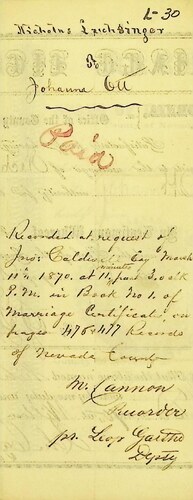 L-30
Nicholas Leichsinger
&
Johanna Ott
Paid
Recorded at request of
Jno: Caldwell Esq March
11th 1870. at 11 minutes past 3. o'clk
P.M. in Book No 1. of
Marriage Certificates, on
pages 476 & 477 Records
of Nevada County
M. Cannon
Recorder
pr. Leop Garthe
Depty